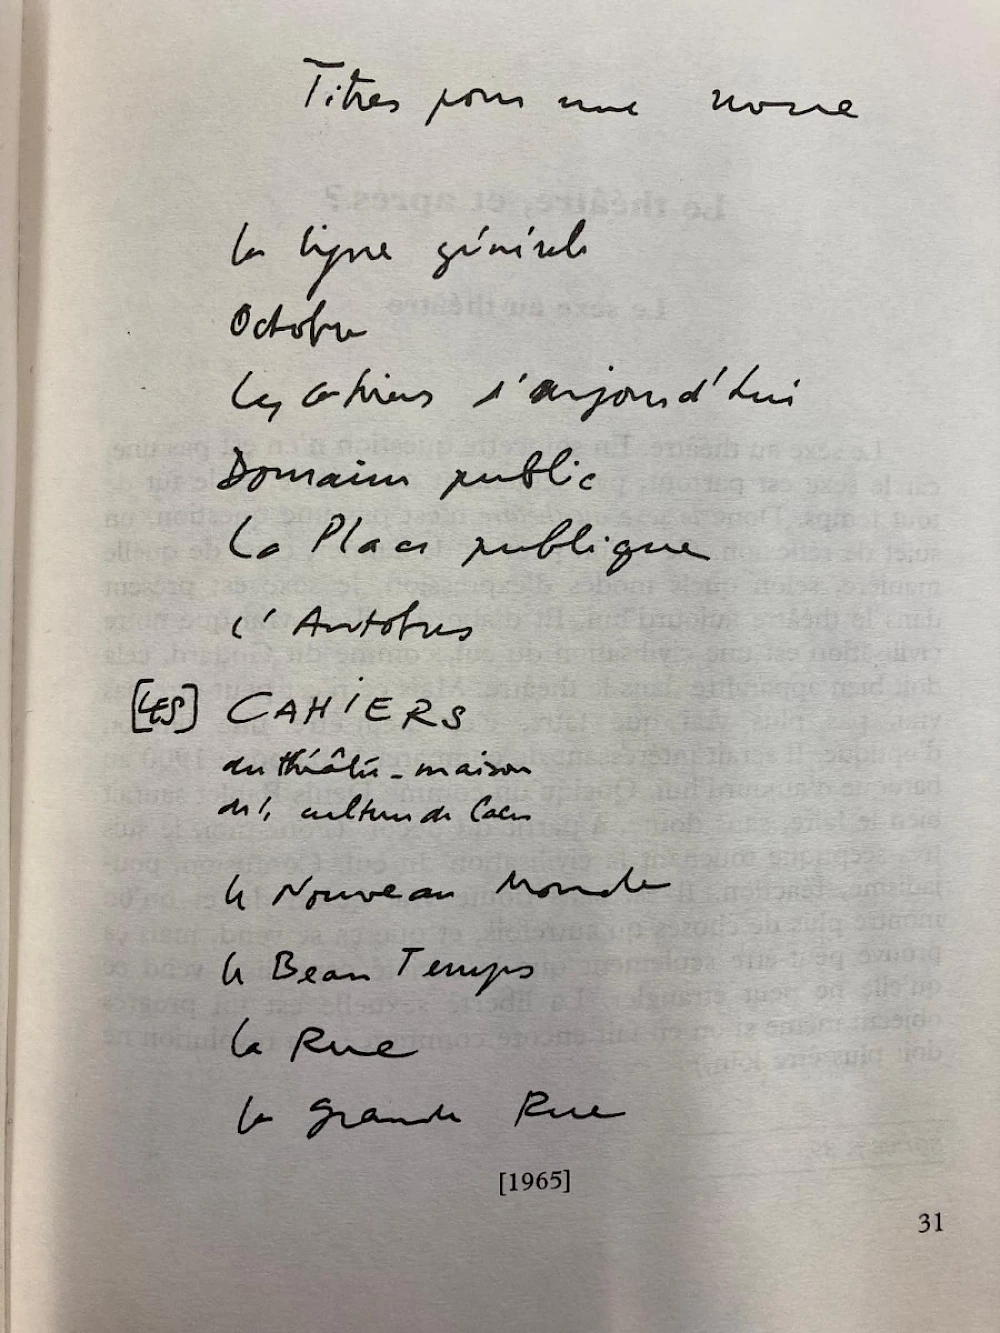 Titres pour une revue
La ligne générale
Octobre
Les cahiers d'aujourd'hui
Domaine public
La Place publique
L'Autobus
[LES] CAHIERS
du théâtre-maison
de la culture de Caen
Le Nouveau Monde
Le Beau Temps
La Rue
La grande Rue
[1965]
31